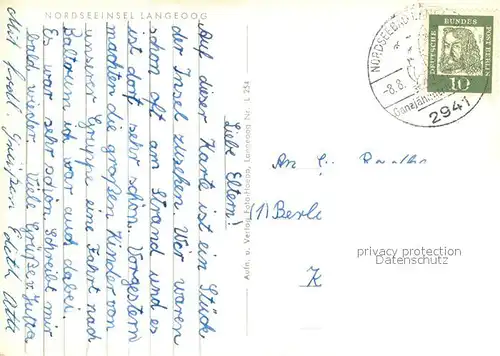 NORDSEEINSEL LANGEOOG
Liebe Eltern!
Auf dieser Karte ist ein Stück
der Insel zusehen. Wir waren
schon oft am Strand und es
ist dort sehr schön. Vorgestern
machten die großen Kinder von
unserer Gruppe eine Fahrt nach
Baltrum ich war auch dabei.
Es war sehr schön. Schreibt mir
bald wieder. Viele Grüße v. Jutta
Mit fredl. Grüßen Edith
Aufn. u. Verlag Foto-Haopo, Langeoog Nr. L 254
NORDSEEBAD LANGEOOG
-8.8.
Ganzjährig
2941
DEUTSCHE BUNDES POST BERLIN
10
An
(1) Berlin
privacy protection
watermark